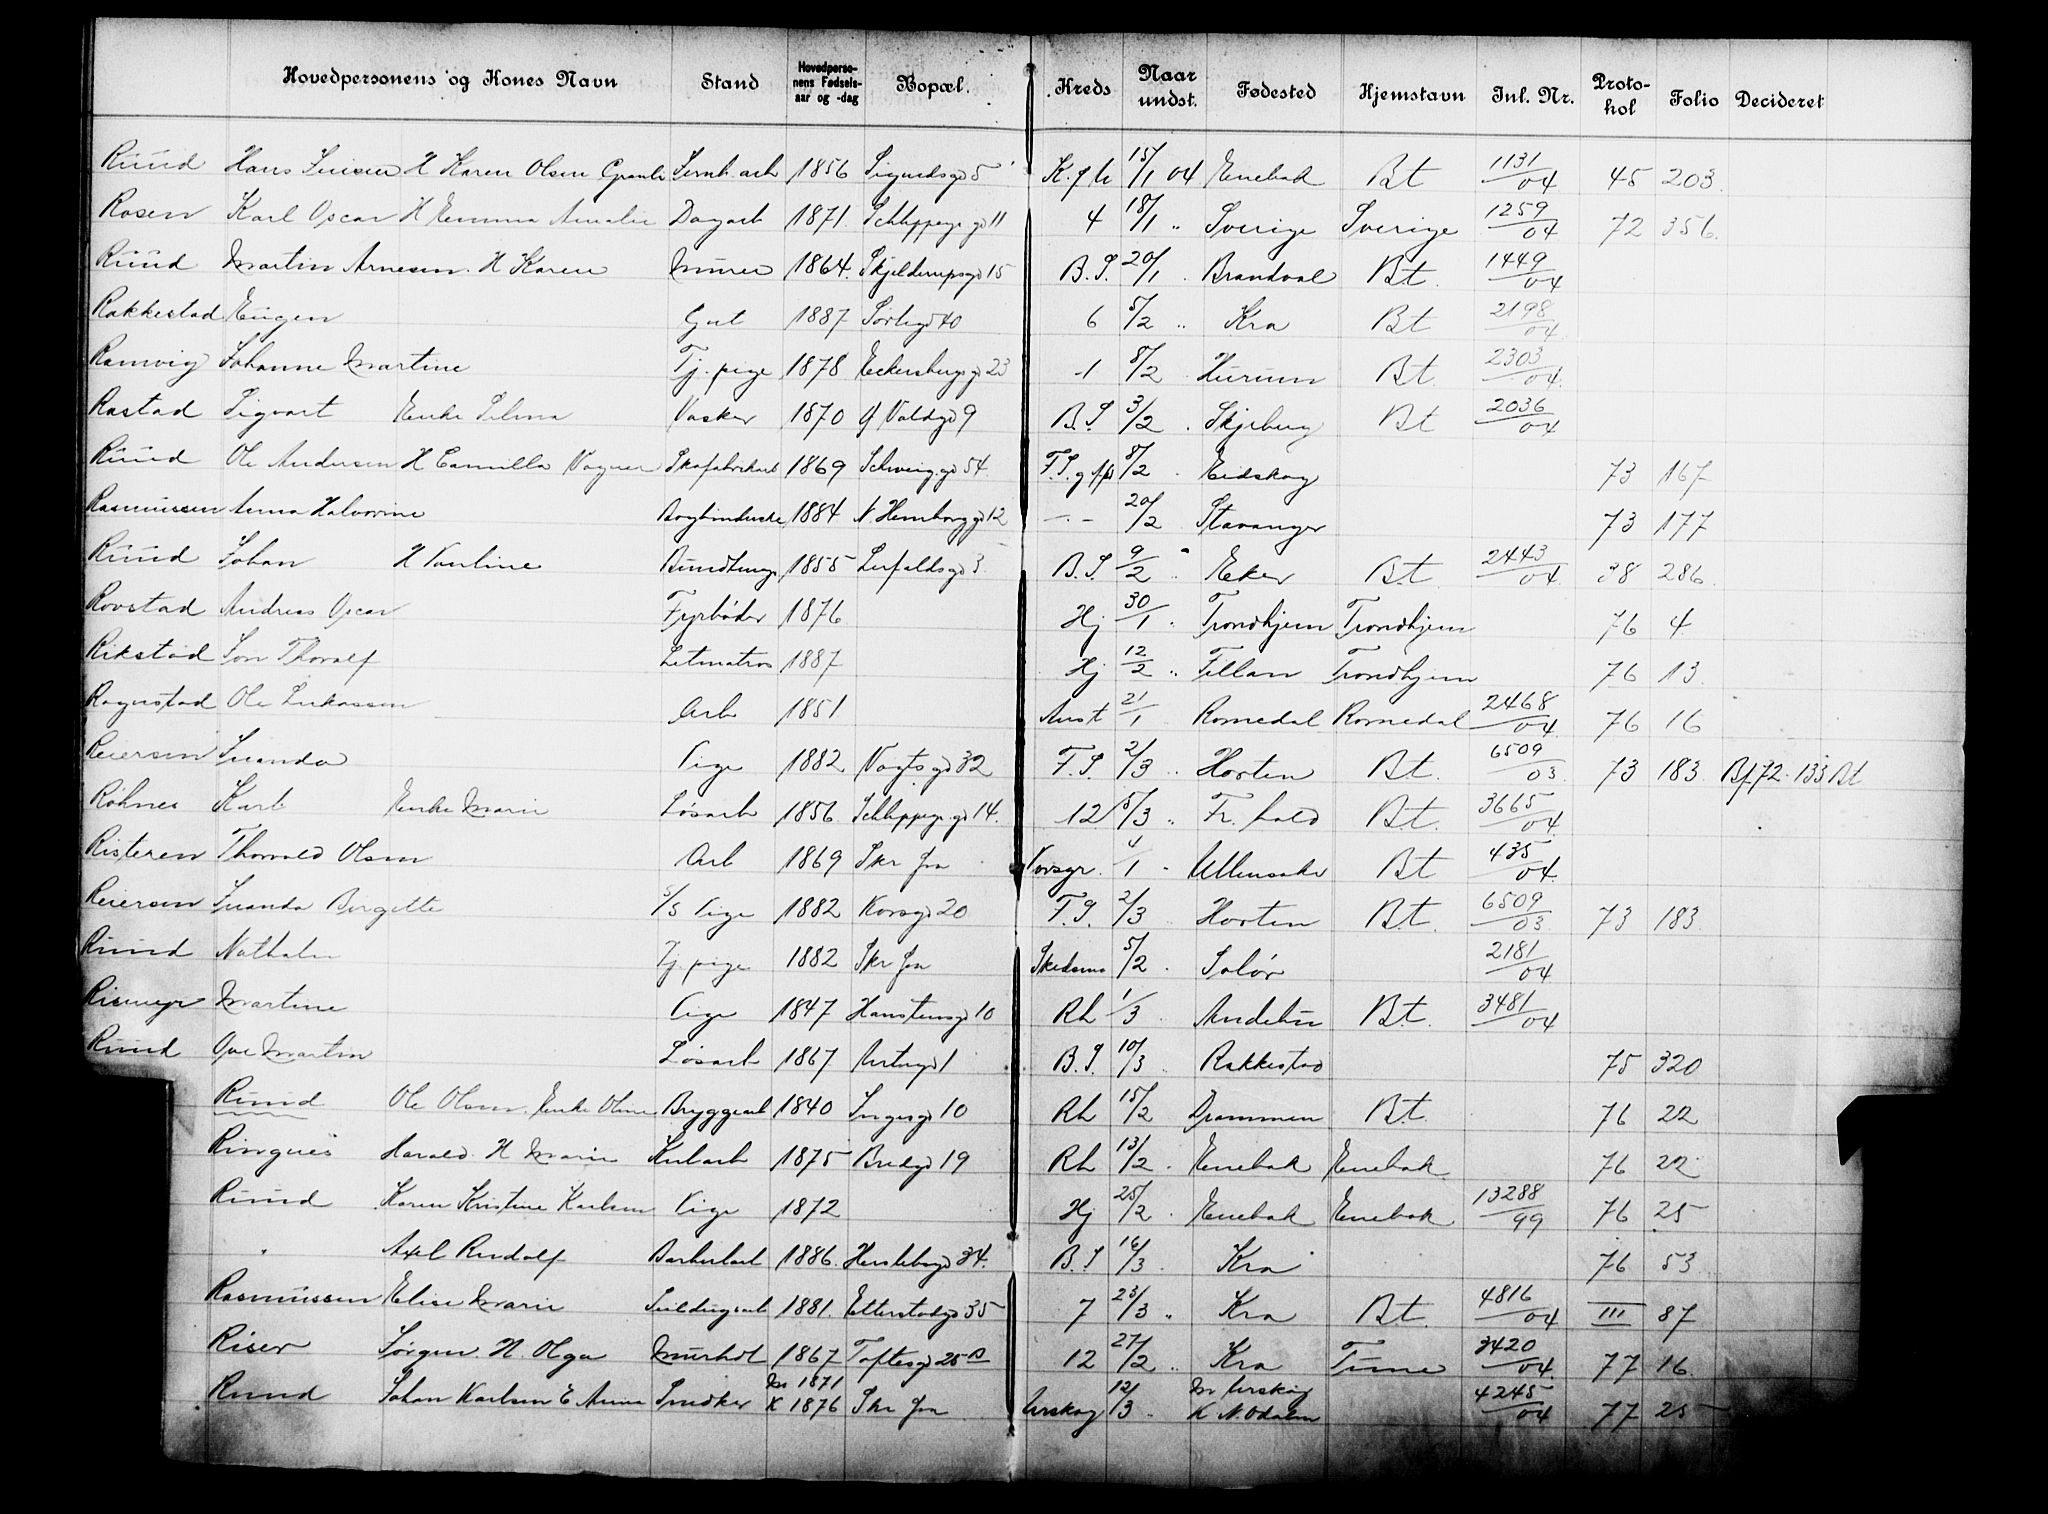 Hovedpersonens og Kones Navn Stand Hovedpersonens Fødsels-aar og -dag Bopæl. Kreds Naar undst. Fødested Hjemstavn Inl. Nr. Protokol Folio Decideret
Ruud Hans Jensen H Karen Olsen Jernb arb 1856 Sigurdsgd 5 15/1 04 Enebak Bt 1131/04 45 203.
Rosen Karl Oscar H Emma Amalie Dagarb 1871. Schleppegr gd 11 4 18/1 " Sverige Sverige 1259/04 72 356.
Ruud Martin Arnesen. H Karen Murer 1864. Skjelderupsgd 15 B.S. 20/1 Brandval Bt. 1449/04
Rakkestad Eugen Gut 1887 Torvgd 40 6 5/2 " Kra Bt 2198/04
Ramvig Johanne Martine Tj. pige 1878 Eckersbergsgd 23 1 8/2 Hurum Bt. 2303/04.
Rastad Sigvart Enke Selma Vasker 1870 Valdgd 9 B.S. 3/2 Skjeberg Bt 2036/04
Ruud Ole Andersen H Camilla Skofabrikarb 1869 Schweig.gd 54. 8/2 Eidskog 73 167
Rasmussen Anna Halvorine Bogbinderske 1884 12 20/2 Stavanger 73 177
Ruud Johan H Pauline 1855 Lerfaldsgd 3 B.S. 9/2 " Eker Bt. 2443/04. 38 286.
Rovstad Andreas Oscar Fyrbøder 1876 Hj 30/1 Trondhjem Trondhjem 76 4
Rikstad Jon Thoralf Letmatros 1887 Hj 12/2 " Fillan Trondhjem 76 13.
Ragnstad Ole Lukassen Arb 1851 Aust 2/1 Romedal Romedal 2468/04. 76 16
Reiersen Juanda Pige 1882 Vogtsgd 32 F.S. 2/3 " Horten Bt. 6509/03. 73 183. Bf 72. 133 Bt
Röhnes Karl Enke Marie Løsarb 1856 Schleppegr.gd 14. 12 5/3 " Fr. hald Bt. 3665/04
Risteren Thorvald Olsen Arb 1869 Skr fra Vorsgr. 4/1 Ullensaker Bt 435/04.
Reiersen Juanda Birgitte Pige 1882 Korsgd 20 F.S. 2/3 Horten Bt. 6509/03 73 183
Ruud Nathalie Tj. pige 1882 Skr fra Skedsmo 5/2 Solör 2181/04
Rismyr Martine Pige 1847 Hansteensgd 10 Rh 1/3 Andebu Bt. 3481/04
Ruud Ove Martin Løsarb 1867 Urtegd 1 B.S. 10/3 " Rakkestad 75 320
Ruud Ole Olsen. Enke Oline Bryggearb 1840 Ingesgd 10 Rh 15/2 Drammen Bt. 76 22
Ringnes Harald. H Marie Kularb 1875 Bredgd 19 Rh 13/2 Enebak Enebak 76 22
Ruud Karen Kristine Karlsen Pige 1872 Hj 25/2 Enebak Enebak 13288/99 76 25
" Axel Rudolf Barberlærl 1886. Herslebsgd 34. B.S 16/3 Kra 76 53
Rasmussen Elise Marie 1881. Etterstadsgd 35 7 23/3 " Kra Bt. 4816/04 III 87
Riser Jörgen. H. Olga Murhdt 1867 Toftesgd 25 B 12 27/2 " Kra Tune 3420/04. 77 16
Ruud Johan Karlsen E Anna Snedker M 1871 K 1876 Skr fra Urskog 12/3 " M Urskog K N. Odalen 4245/04 77 25